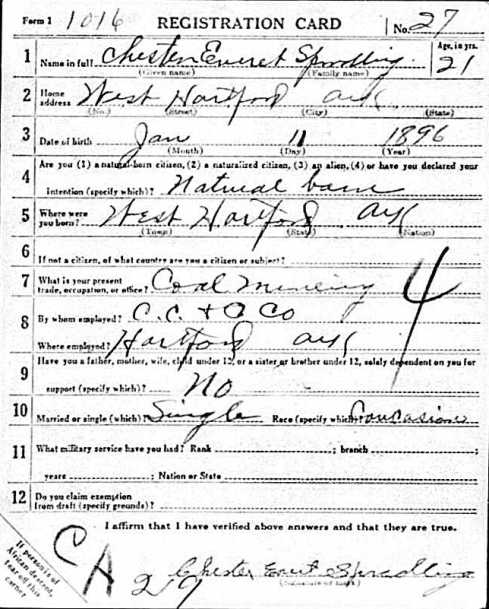 Form 1 1016 REGISTRATION CARD No. 27
1 Name in full Chester Everet Spradling Age, in yrs. 21
(Given name) (Family name)
2 Home address West Hartford Ark
(No.) (Street) (City) (State)
3 Date of birth Jan 11 1896
(Month) (Day) (Year)
Are you (1) a natural-born citizen, (2) a naturalized citizen, (3) an alien, (4) or have you declared your
4 intention (specify which)? Natural born
5 Where were you born? West Hartford Ark
(Town) (State) (Nation)
6 If not a citizen, of what country are you a citizen or subject?
7 What is your present trade, occupation, or office? Coal Mineing 4
8 By whom employed? C. C. & Co
Where employed? Hartford Ark
Have you a father, mother, wife, child under 12, or a sister or brother under 12, solely dependent on you for
9 support (specify which)? No
10 Married or single (which)? Single Race (specify which)? Coucasion
11 What military service have you had? Rank ; branch ;
years ; Nation or State
12 Do you claim exemption from draft (specify grounds)?
I affirm that I have verified above answers and that they are true.
If person is of African descent, tear off this corner
C A 29
Chester Spradling